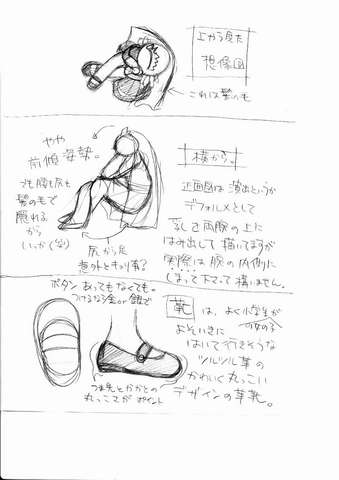 上から見た
想像図
←これは髪の毛
やや
前傾姿勢。
でも胸も尻も
髪の毛で
隠れる
から
いっか(笑)
尻から足
意外とキョリ有?
横から。
正面図は演出というか
デフォルメとして
乳を両腕の上に
はみ出して描いてますが
実際は腕の内側に
しまって下さって構いません。
ボタンあってもなくても。
つけるなら金or銀で
つま先とかかとの
丸っこさがポイント
靴は、よく小学生が
女の子の
よそいきに
はいて行きそうな
ツルツル革の
かわいく丸っこい
デザインの革靴。